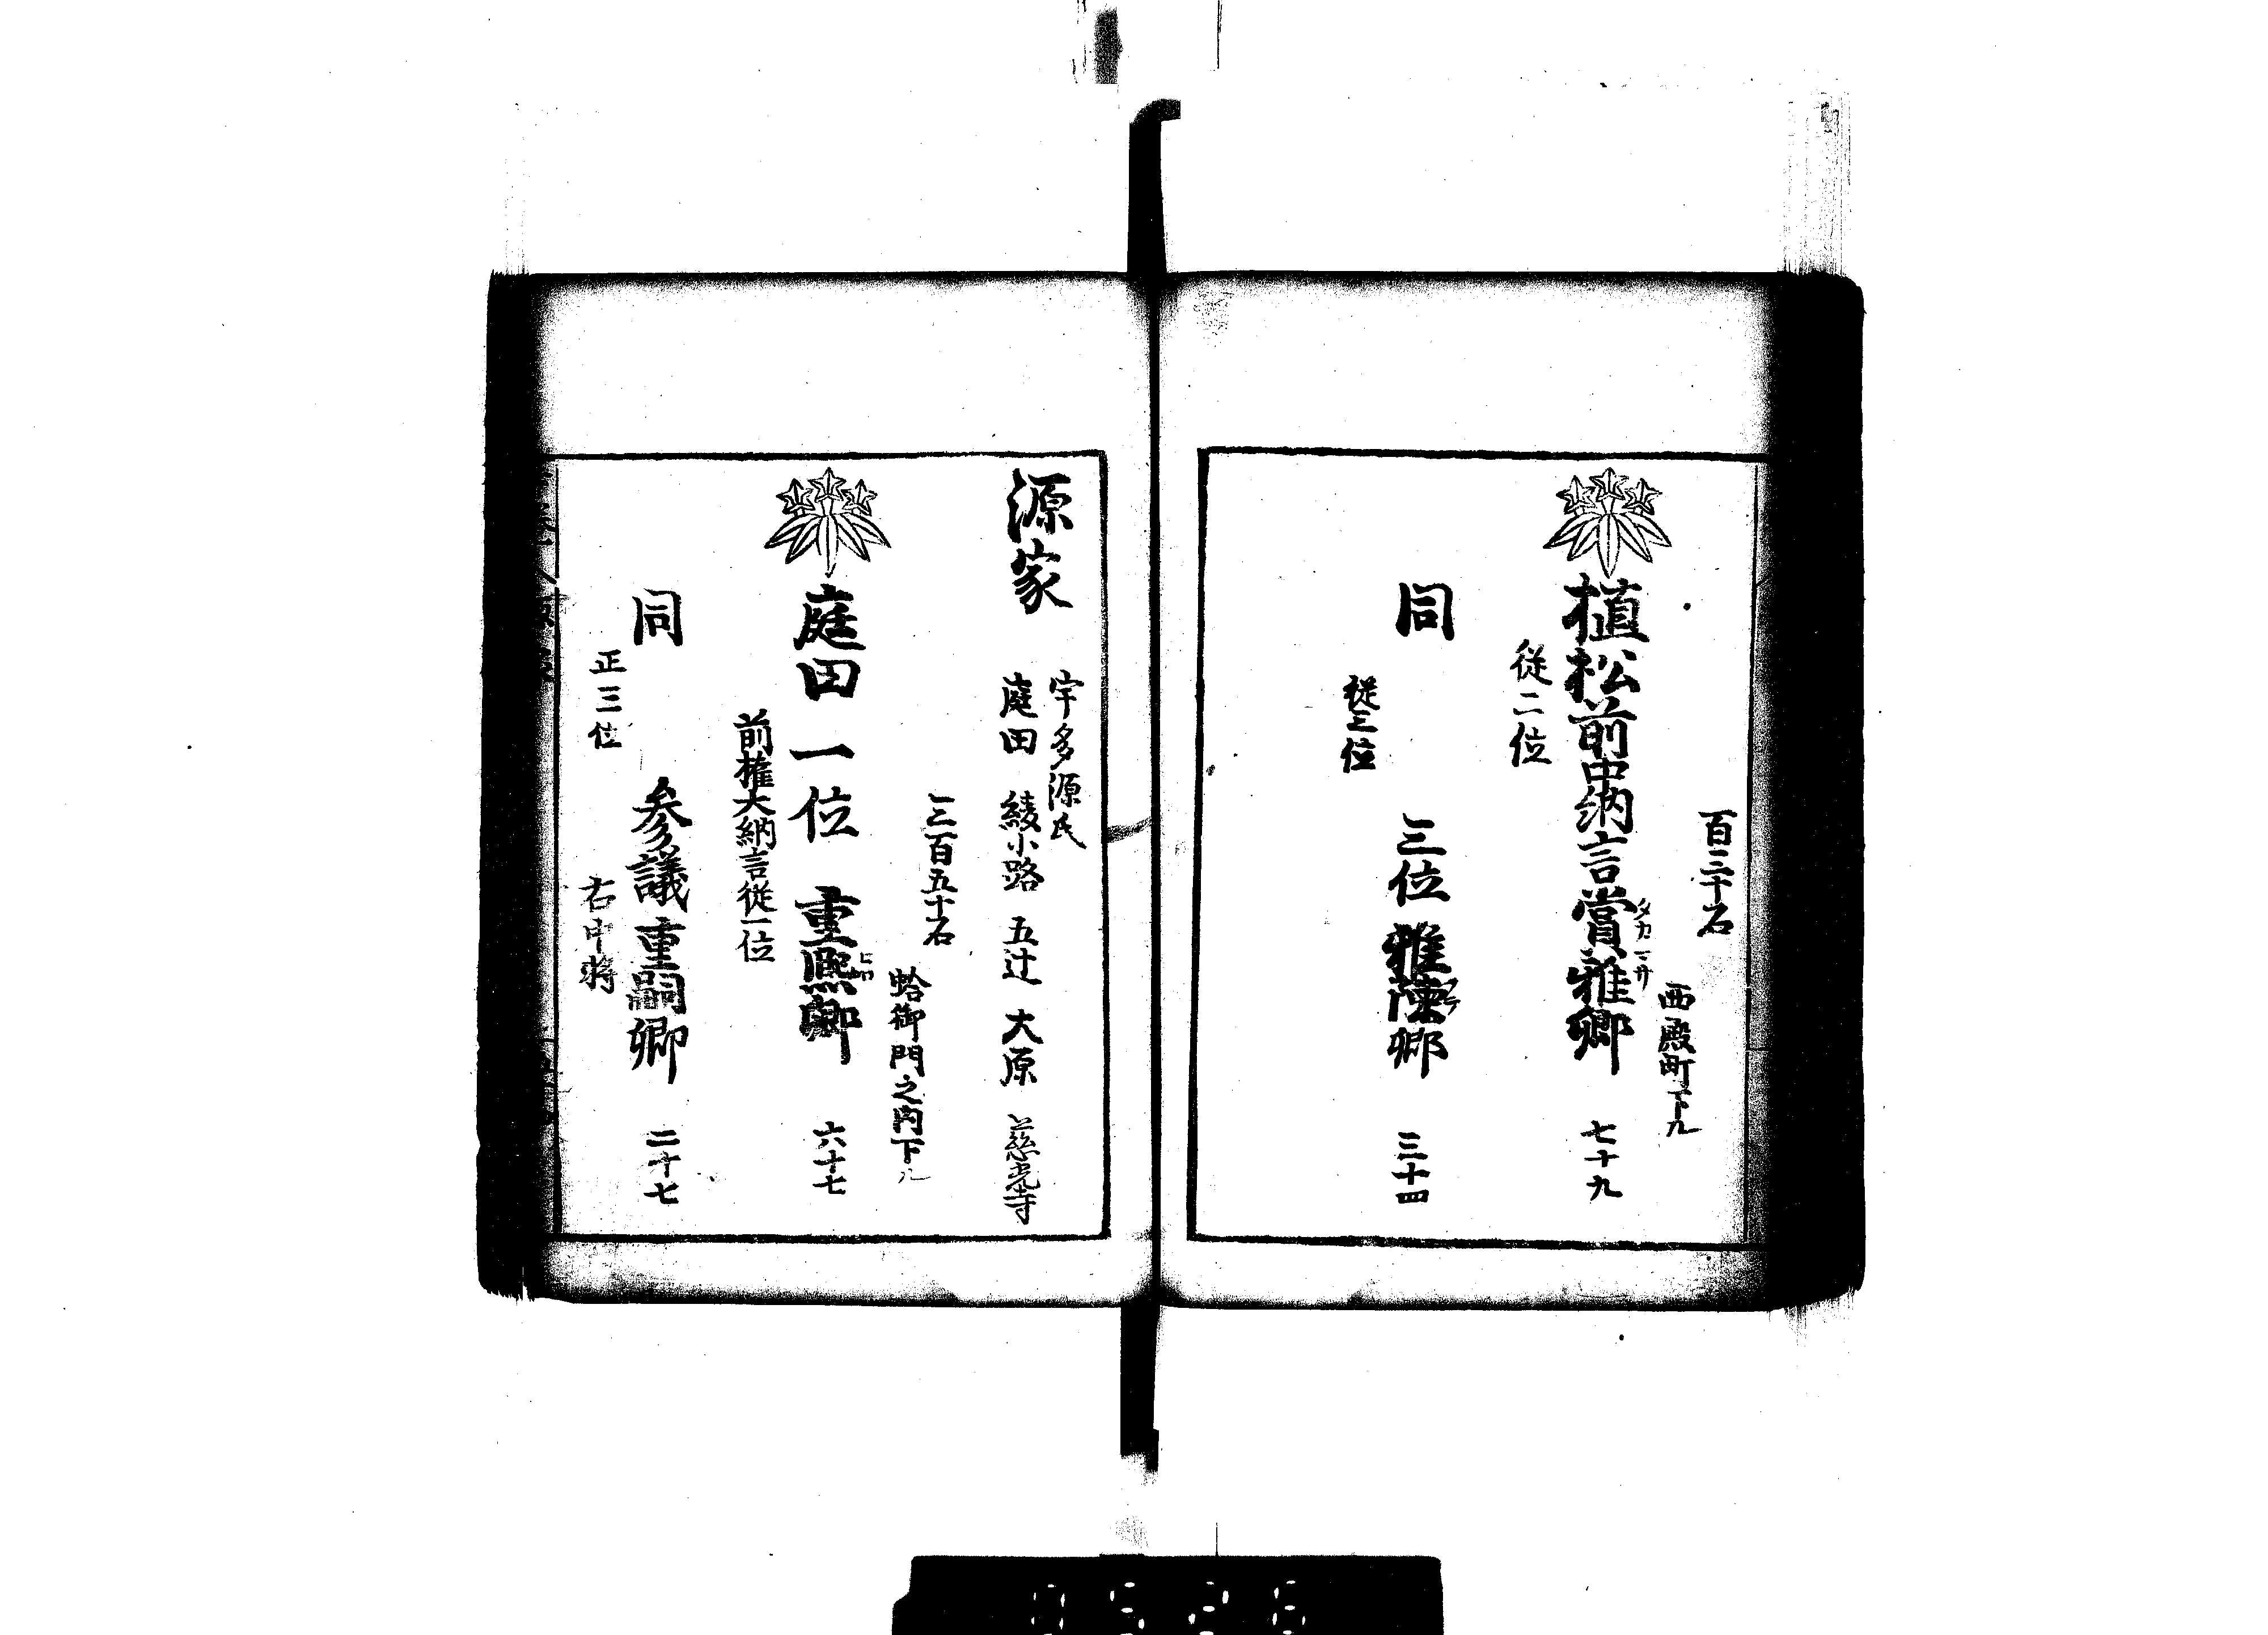 百三十石
西殿町下ル
植松前中納言賞雅卿 七十九
タカマサ
従二位
同 三位雅陳卿 三十四
従三位
源家
宇多源氏
庭田 綾小路 五辻 大原 慈光寺
三百五十石
蛤御門之内下ル
庭田一位 重熈卿 六十七
前權大納言従一位
同 参議重嗣卿 二十七
正三位 右中将